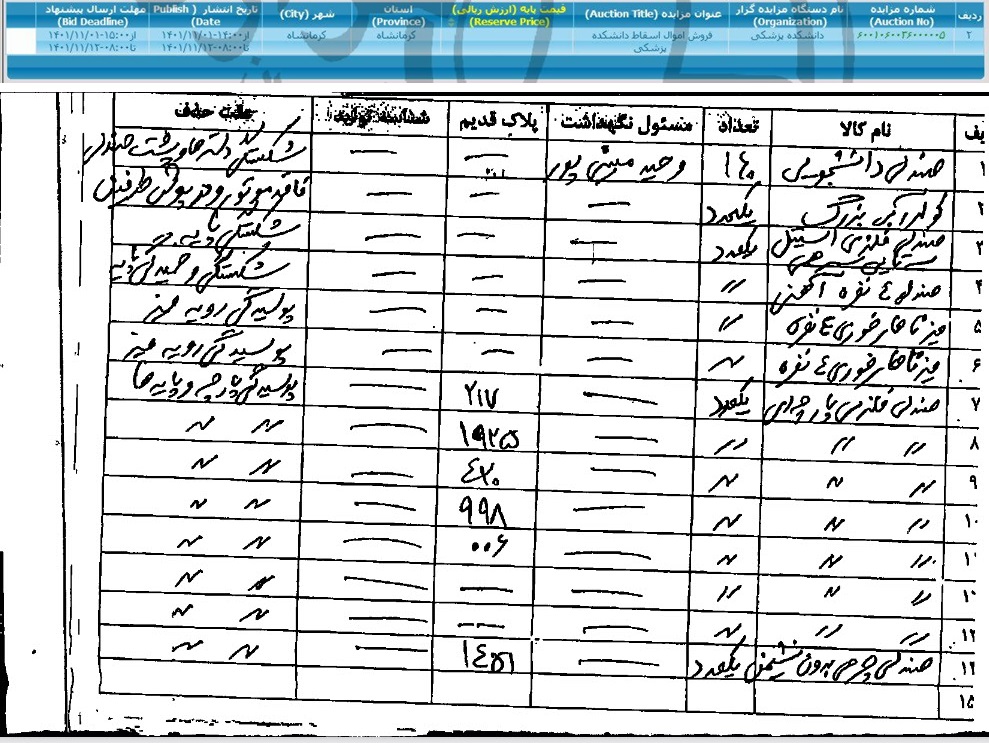 ردیف
شماره مزایده (Auction No)
نام دستگاه مزایده گزار (Organization)
عنوان مزایده (Auction Title)
قیمت پایه (ارزش ریالی) (Reserve Price)
استان (Province)
شهر (City)
تاریخ انتشار (Publish Date)
مهلت ارسال پیشنهاد (Bid Deadline)
۲
دانشکده پزشکی
فروش اموال اسقاط دانشکده پزشکی
کرمانشاه
کرمانشاه
از:۱۴:۰۰-۱۴۰۱/۱۱/۰۱
تا:۰۸:۰۰-۱۴۰۱/۱۱/۱۲
از:۱۵:۰۰-۱۴۰۱/۱۱/۰۱
تا:۰۸:۰۰-۱۴۰۱/۱۱/۱۲
یف نام کالا تعداد مسئول نگهداشت پلاک قدیم شناسه تولید علت حذف
۱ صندلی دانشجویی ۱۴۰ وحید پور شکستگی دسته ها و پشت صندلی
۲ کولر آبی بزرگ یکعدد فاقد موتور و
۳ صندلی فلزی استیل یکعدد شکستگی پایه
۴ صندلی ٤ نفره آهنی // شکستگی و خمیدگی پایه
۵ میز ناهارخوری ٤ نفره // پوسیدگی رویه میز
۶ میز ناهارخوری ٤ نفره // پوسیدگی رویه میز
۷ صندلی فلزی پارچه ای یکعدد ۲۱۷ پوسیدگی پارچه و پایه ها
۸ // // // ۱۹۲۵ // //
۹ // // // ٤۲۰ // //
۱۰ // // // ۹۹۸ // //
// // // ۰۰۶ // //
// // // // //
۱۳ // // // // //
۱۴ صندلی چرمی بدون نشیمن یکعدد ۱٤۵۱ // //
۱۵